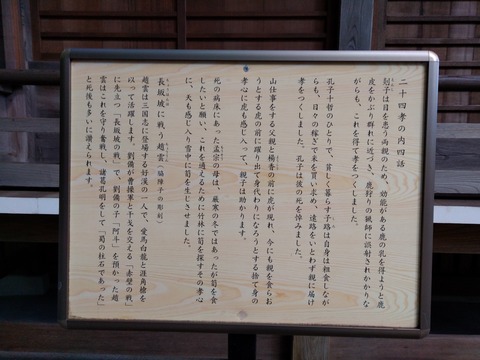 二十四孝の内四話
剡子は目を患う両親のため、効能がある鹿の乳を得ようと鹿
皮をかぶり群れに近づき、鹿狩りの猟師に誤射されかかりな
がらも、これを得て孝をつくしました。
孔子十哲のひとりで、貧しく暮らす子路は自身は粗食しなが
らも、日々の稼ぎで米を買い求め、遠路をいとわず親に届け
孝をつくしました。孔子は彼の死を悼みました。
山仕事をする父親と楊香の前に虎が現れ、今にも親を食らお
うとする虎の前に躍り出て身代わりになろうとする捨て身の
孝心に虎も感じ入って、親子は助かります。
死の病床にあった孟宗の母は、厳寒の冬ではあったが筍を食
したいと願い、これを通えるために竹林に筍を探すその孝心
に、天も感じ入り雪中に筍を生じさせました。
長坂坡に戦う趙雲（脇障子の彫刻）
趙雲は三国志に登場する好漢の一人で、愛馬白龍と涯角槍を
以って活躍します。劉備が曹操軍と干戈を交える「赤壁の戦」
に先立つ「長坂の戦」で、劉備の子「阿斗」を預かった趙
雲はこれを守り奮戦し、諸葛孔明をして「蜀の柱石であった」
と死後も多いに讃えられます。